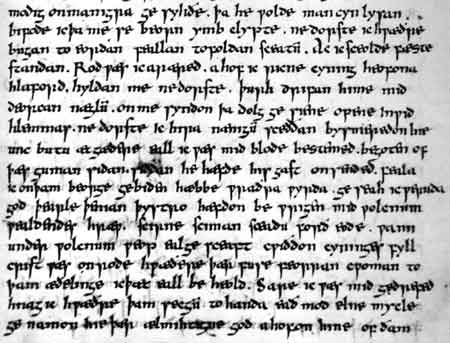 modig on manigra ge syhðe . þa he ƿolde man cyn lysan .
bifode ic þa me se beorn ymb clypte . ne dorste ic hƿæðre
bugan to eorðan feallan to foldan sceatū . Ac ic sceolde fæste
standan . Rod ƿæs ic aræred . ahof ic ricne cyning heofona
hlaford , hyldan me ne dorste . þurh drifan hi me mid
deorcan næglū . on me syndon þa dolg ge siene opene inƿid
hlemmas . ne dorste ic hira nænigū sceððan bysmeredon hie
unc butu æt gædere eall ic ƿæs mid blode bestemed . begoten of
þæs guman sidan . siððan he hæfde his gast on sended . feala
ic on þam beorge gebiden hæbbe ƿraðra ƿyrda . ge seah ic ƿeruda
god þearle þenian þystro hæfdon be ƿrigen mid ƿolcnum
ƿealdendes hræƿ . scirne sciman sceadu forð eode . ƿann
under ƿolcnum ƿeop eal ge sceaft cƿiðdon cyninges fyll
crist ƿæs on rode hƿæðere þær fuse feorran cƿoman to
þam æðelinge ic þæt eall be heold . Sare ic ƿæs mid gedrefed
hnag ic hƿæðre þam secgū to handa eað mod elne mycle
ge namon hie þær ælmihtigne god ahofon hine of ðam